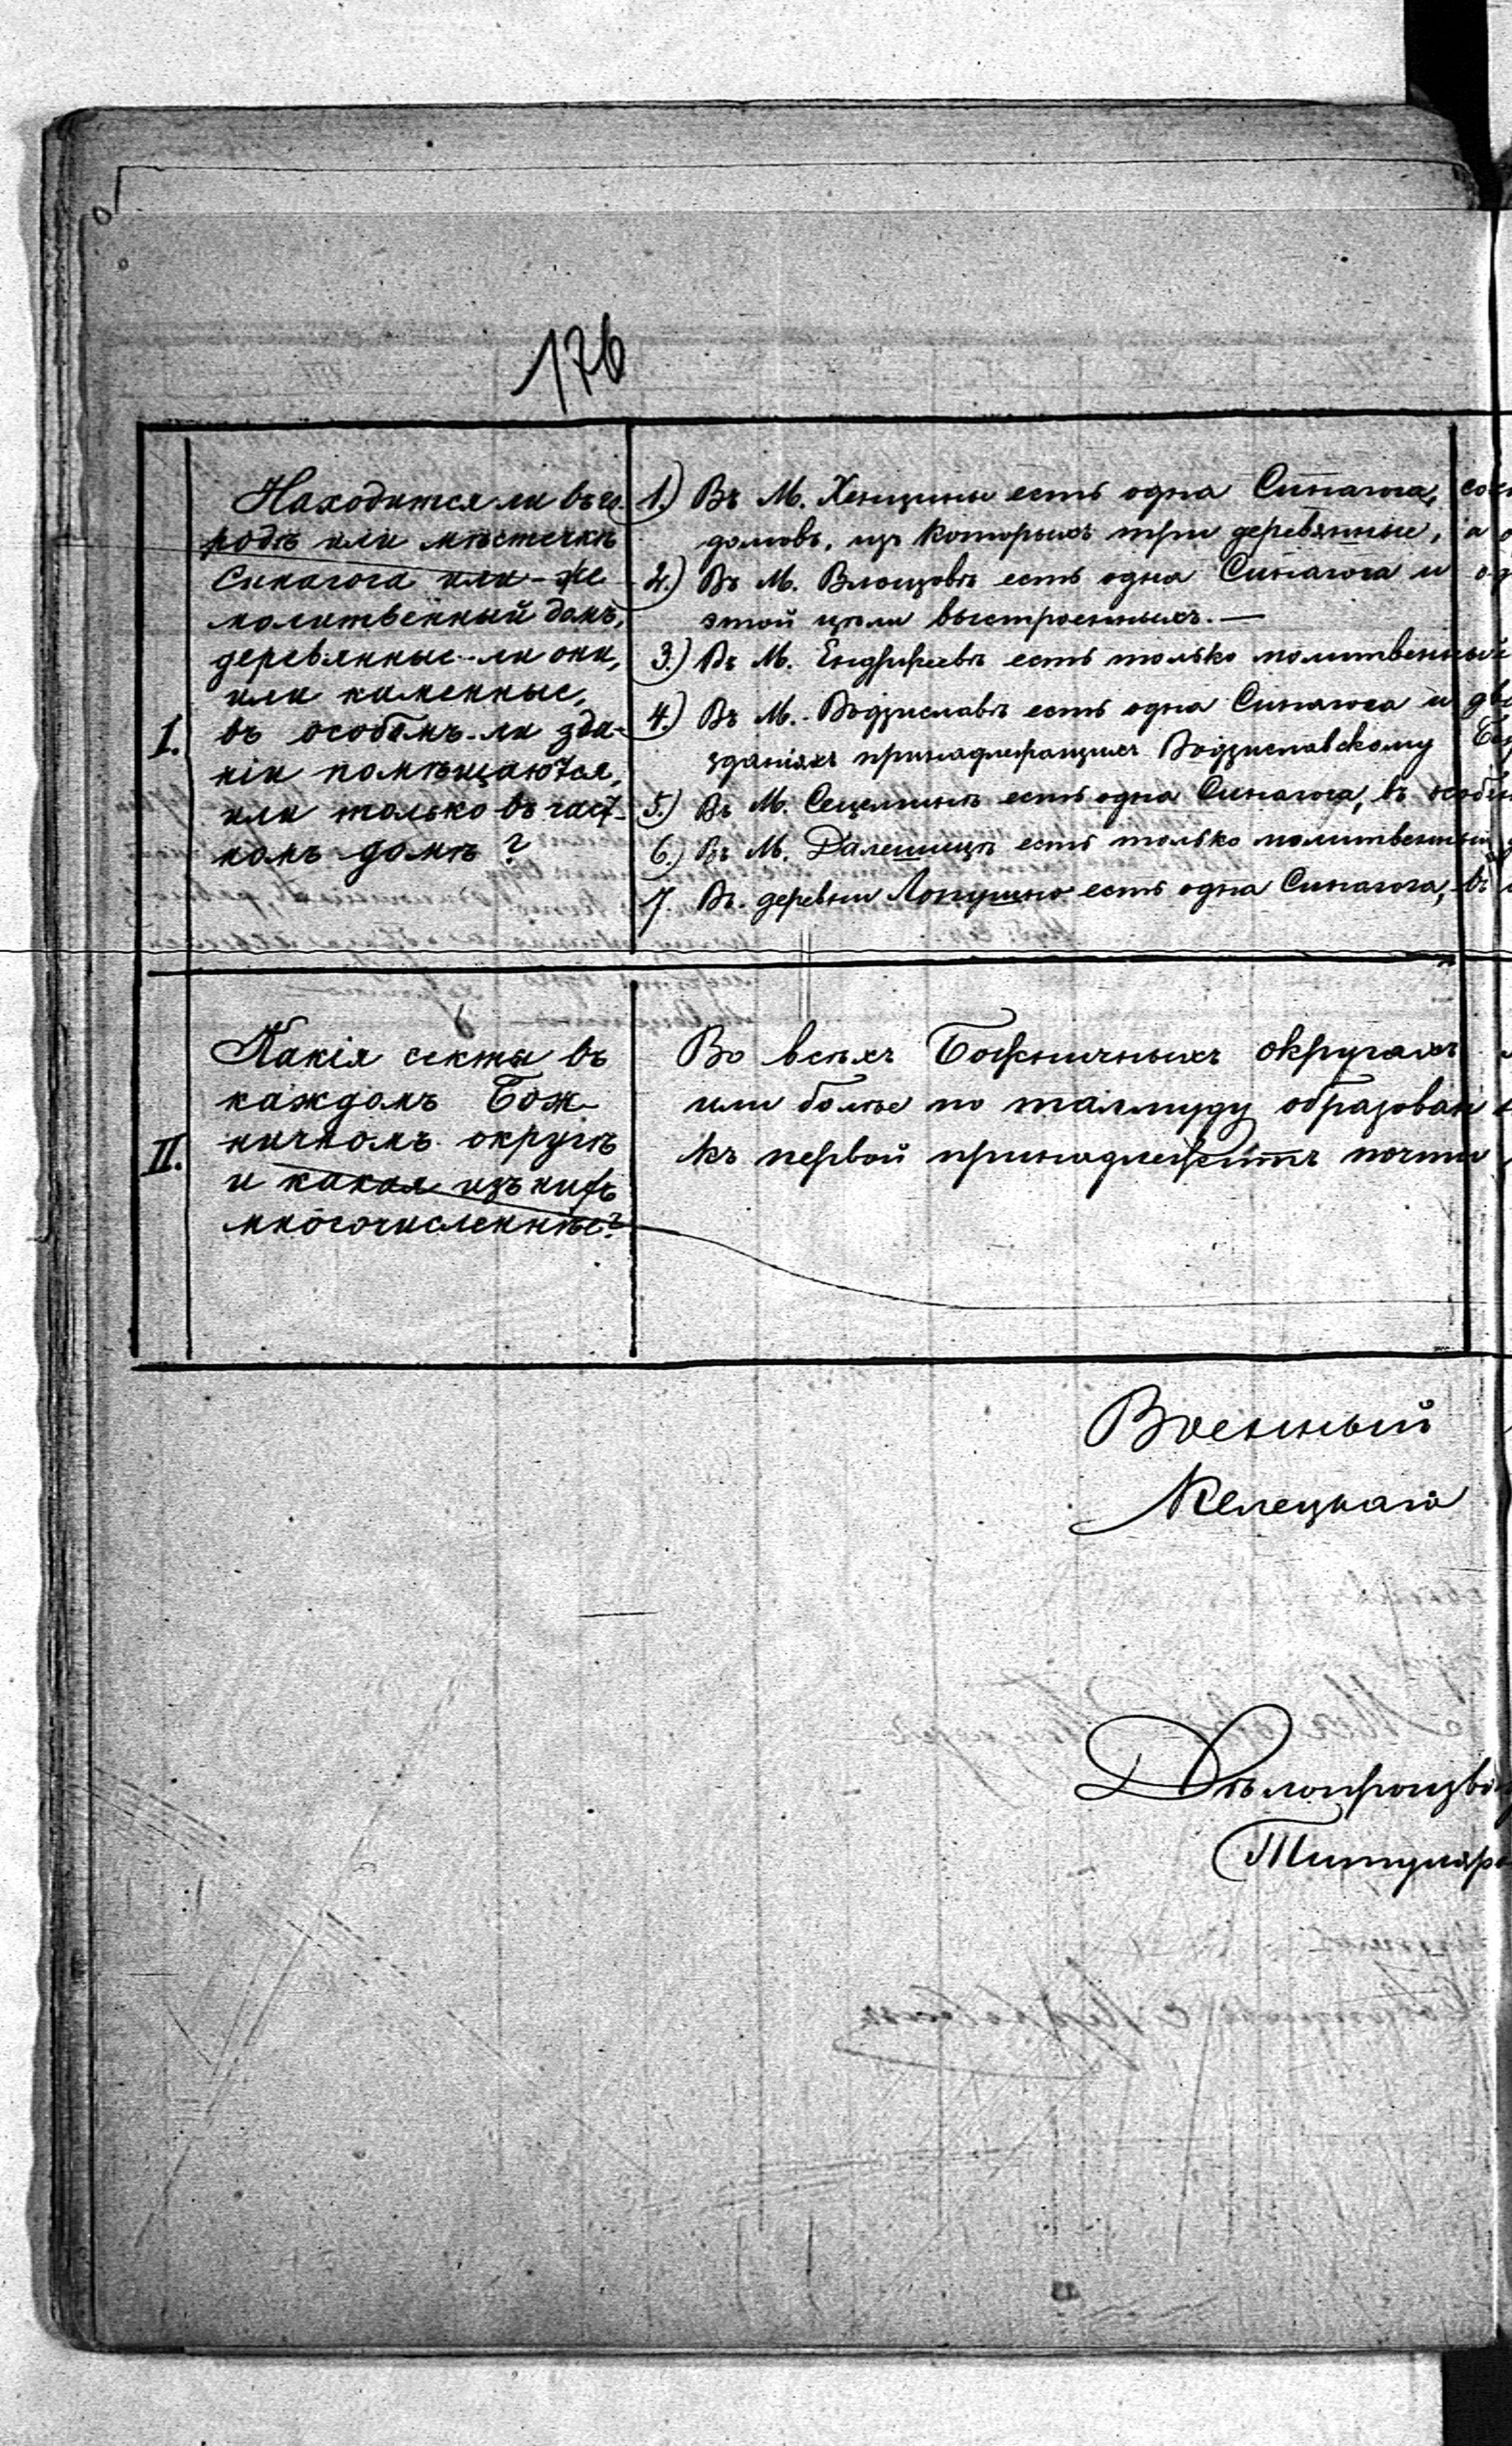 176
I.
Находится ли въ го-
родѣ или мѣстечкѣ
Синагога или-же
молитвенный домъ,
деревянные-ли они,
или каменные,
въ особомъ-ли зда-
ніи помѣщаются,
или только въ част-
номъ домѣ?
1.) Въ М. Хенцины есть одна Синагога,
домовъ, изъ которыхъ три деревянные, а
2.) Въ М. Влощовѣ есть одна Синагога и
этой цѣли выстроенныхъ. —
3.) Въ М. Ендржеевѣ есть только молитвенный
4.) Въ М. Водзиславѣ есть одна Синагога и
зданіяхъ принадлежащихъ Водзиславскому
5.) Въ М. Сецеминѣ есть одна Синагога, въ
6.) Въ М. Далешицѣ есть только молитвенный
7. Въ деревни Лопушно есть одна Синагога, въ
II.
Какія секты въ
каждомъ Бож-
ничномъ округѣ
и какая изъ нихъ
многочисленнѣе?
Во всѣхъ Божничныхъ округахъ
или болѣе по талмуду образован
къ первой принадлежитъ почти
Военный
Келецкаго
Дѣлопроизво
Титуляр